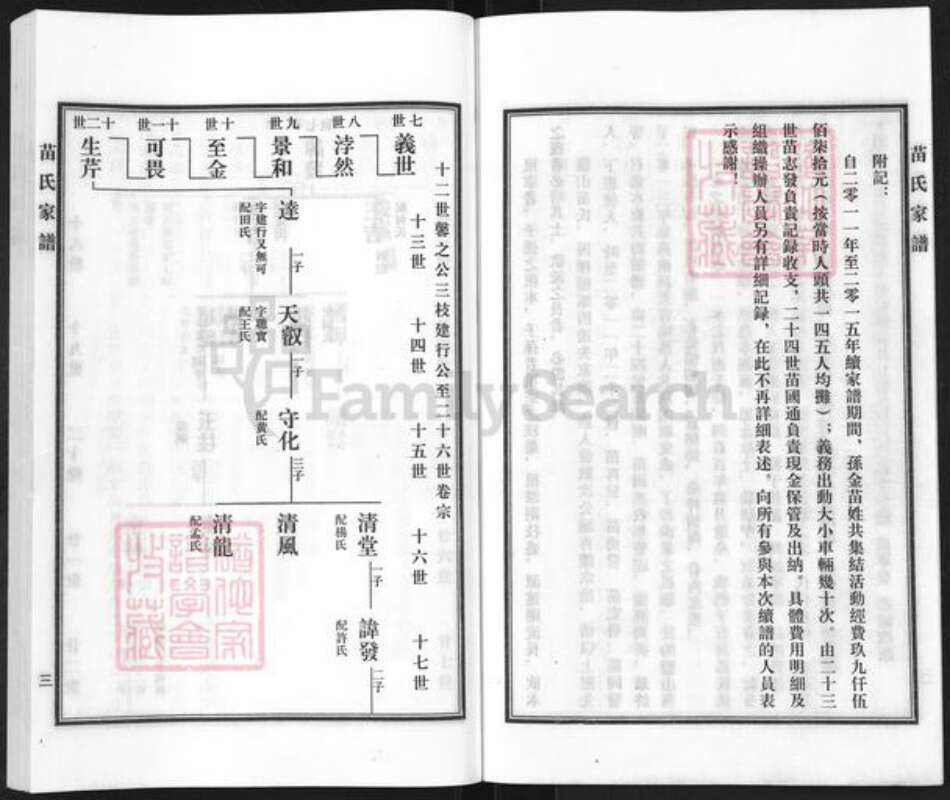 苗氏家譜
附記：
自二零一一年至二零一五年續家譜期間，孫金苗姓共集結活動經費玖九仟伍
佰柒拾元（按當時人頭共一四五人均攤）；義務出動大小車輛幾十次。由二十三
世苗志發負責記録收支、二十四世苗國通負責現金保管及出納。具體費用明細及
組織操辦人員另有詳細記録，在此不再詳細表述。向所有參與本次續譜的人員表
示感謝！
十二世馨之公三枝建行公至二十六世卷宗
七世 義世
八世 浡然
九世 景和
十世 至金
十一世 可畏
十二世 生芹
十三世 十四世 十五世 十六世 十七世
達
字建行又無可
配田氏
一子
天叡
字聽實
配王氏
一子
守化
配黄氏
三子
清堂
配楊氏
一子
諱發
配許氏
二子
清風
清龍
配孟氏
苗氏家譜
三
FamilySearch